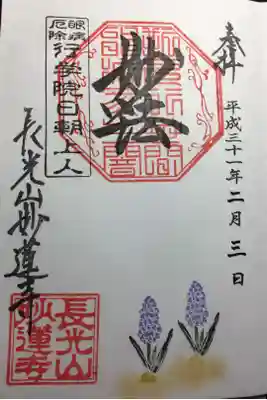 奉拝
平成三十一年二月三日
妙法
眼病
厄除
行学院日朝上人
長光山妙蓮寺
長光山
妙蓮寺